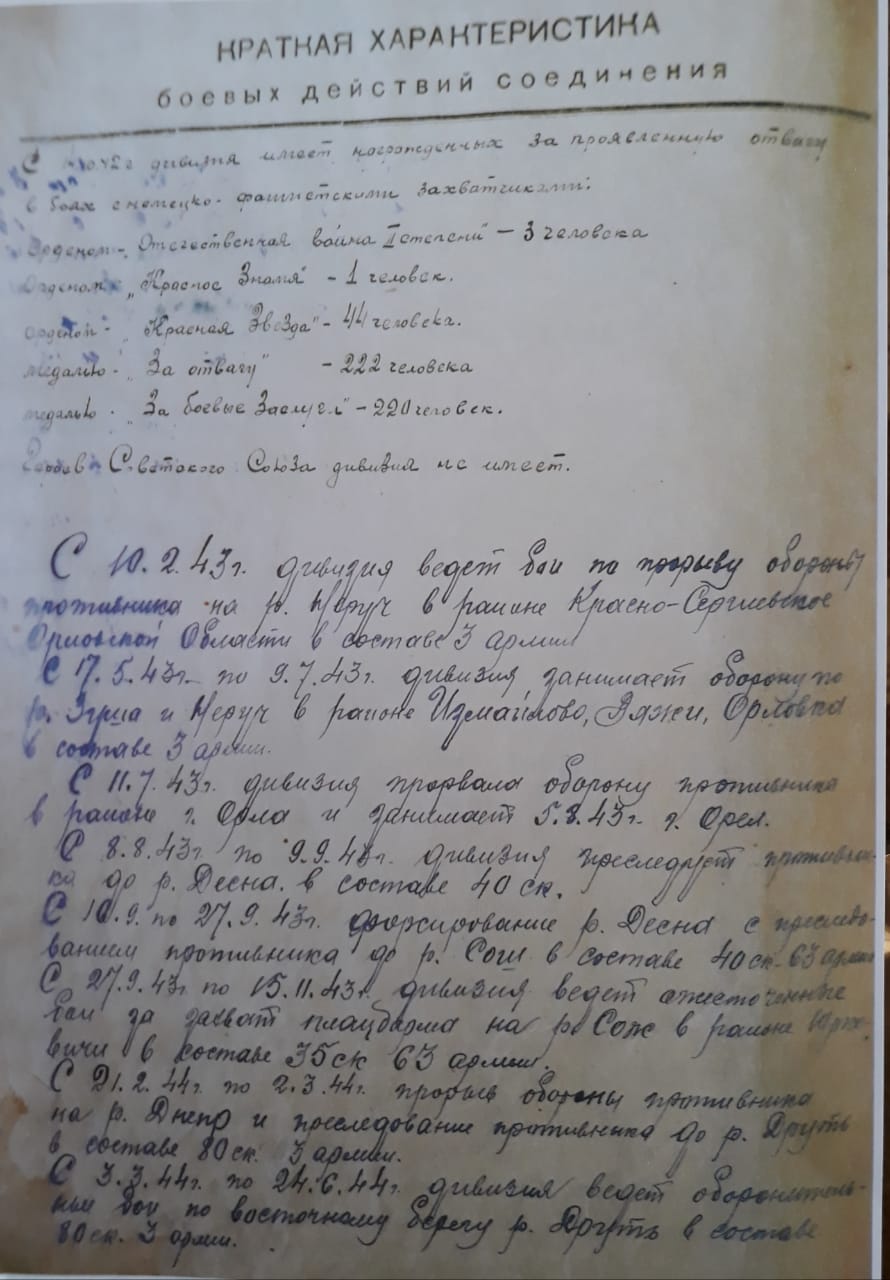 КРАТКАЯ ХАРАКТЕРИСТИКА
боевых действий соединения
С дивизия имеет награжденных за проявленную отвагу
в боях с немецко-фашистскими захватчиками:
Орденом - „Отечественная война II степени" - 3 человека
Орденом - „Красное Знамя" - 1 человек.
орденом - „Красная Звезда" - 44 человека.
медалью - „За отвагу" - 222 человека
медалью - „За боевые Заслуги" - 220 человек.
Героев Советского Союза дивизия не имеет.
С 10.2.43г. дивизия ведет бои по прорыву обороны
противника на р. Неруч в районе Красно-Сергиевское
Орловской Области в составе 3 армии
С 17.5.43г. по 9.7.43г. дивизия занимает оборону по
р. Зуша и Неруч в районе Измайлово, Вяжи, Орловка
в составе 3 армии.
С 11.7.43г. дивизия прорвала оборону противника
в районе г. Орла и занимает 5.8.43г. г. Орел.
С 8.8.43г. по 9.9.43г. дивизия преследует противни-
ка до р. Десна. в составе 40 ск.
С 10.9. по 27.9.43г. форсирование р. Десна с преследо-
ванием противника до р. Сож в составе 40 ск. 63 армии
С 27.9.43г по 15.11.43г. дивизия ведет ожесточенные
бои за захват плацдарма на р. Сож в районе
в составе 35 ск 63 армии.
С 21.2.44г. по 2.3.44г. прорыв обороны противника
на р. Днепр и преследование противника до р. Друть
в составе 80 ск. 3 армии.
С 3.3.44г. по 24.6.44г. дивизия ведет оборонитель-
ные бои по восточному берегу р. Друть в составе
80 ск. 3 армии.